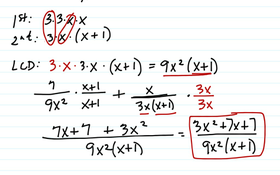 1st: 3·3·x·x
2nd: 3·x·(x+1)
LCD: 3·x·3·x·(x+1) = 9x²(x+1)
7/9x² · x+1/x+1 + x/3x(x+1) · 3x/3x
7x+7 + 3x²/9x²(x+1) = 3x²+7x+7/9x²(x+1)